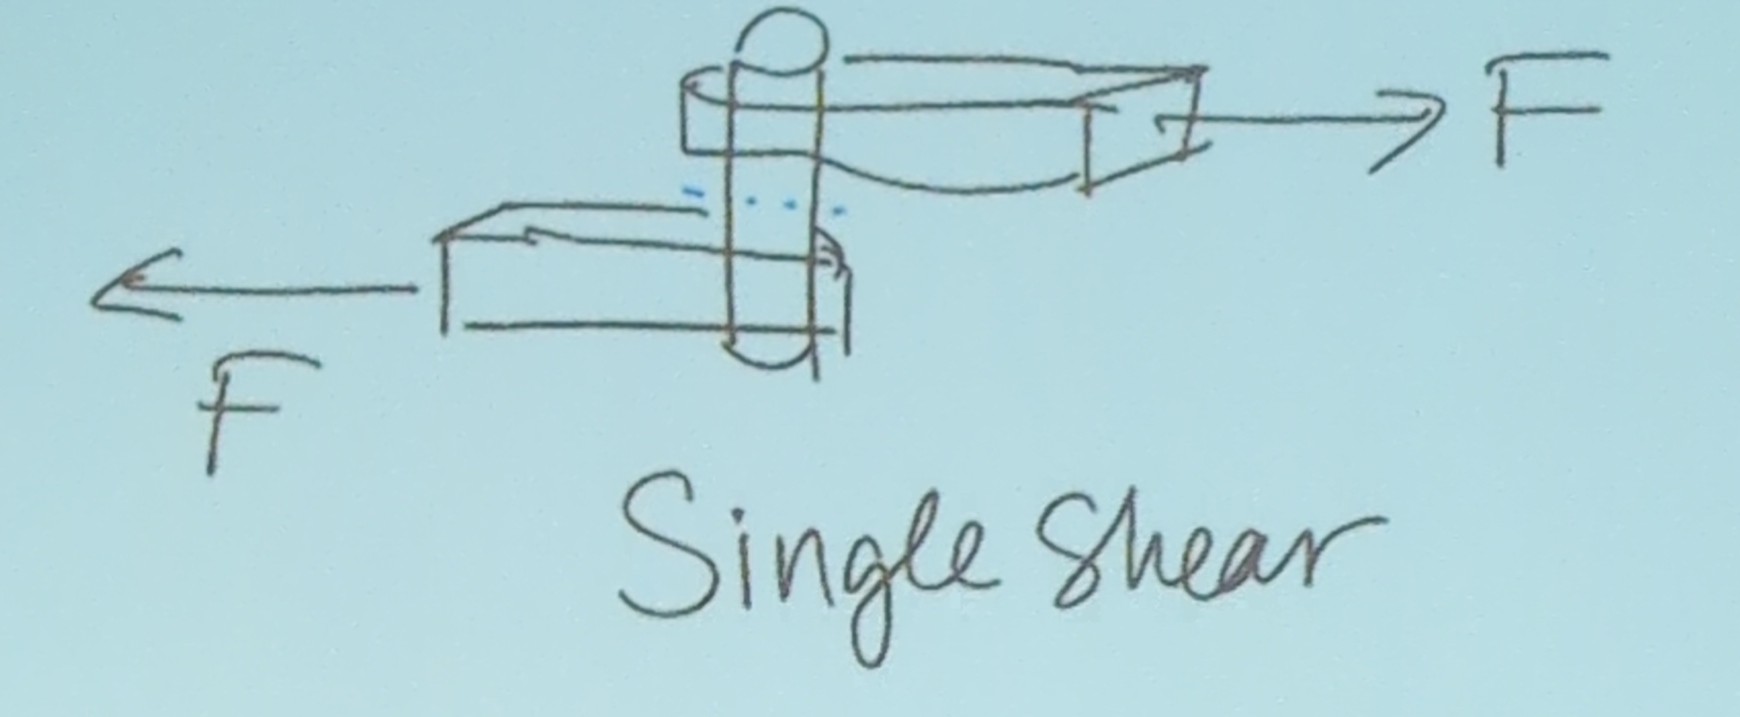 F
F
Single Shear